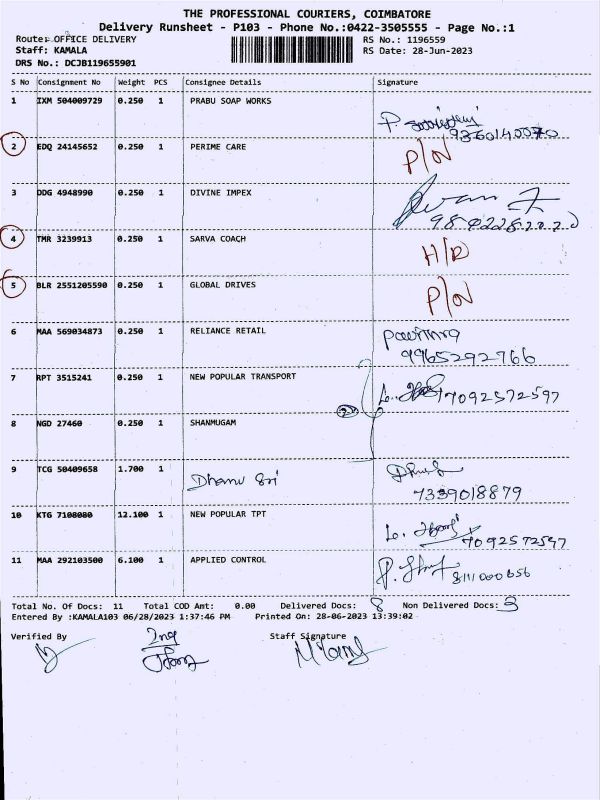 THE PROFESSIONAL COURIERS, COIMBATORE
Delivery Runsheet - P103 - Phone No.:0422-3505555 - Page No.:1
Route: OFFICE DELIVERY RS No.: 1196559
Staff: KAMALA RS Date: 28-Jun-2023
DRS No.: DCJB119655901
S No Consignment No Weight PCS Consignee Details Signature
1 IXM 504009729 0.250 1 PRABU SOAP WORKS
9360140070
2 EDQ 24145652 0.250 1 PERIME CARE P/N
3 DDG 4948990 0.250 1 DIVINE IMPEX
4 TMR 3239913 0.250 1 SARVA COACH H/D
5 BLR 2551205590 0.250 1 GLOBAL DRIVES P/N
6 MAA 569034873 0.250 1 RELIANCE RETAIL
9965292766
7 RPT 3515241 0.250 1 NEW POPULAR TRANSPORT 7092572597
8 NGD 27460 0.250 1 SHANMUGAM
9 TCG 50409658 1.700 1 Dhanu Sri
7339018879
10 KTG 7108080 12.100 1 NEW POPULAR TPT
7092572597
11 MAA 292103500 6.100 1 APPLIED CONTROL
8111000656
Total No. Of Docs: 11 Total COD Amt: 0.00 Delivered Docs: 8 Non Delivered Docs: 3
Entered By :KAMALA103 06/28/2023 1:37:46 PM Printed On: 28-06-2023 13:39:02
Verified By Staff Signature